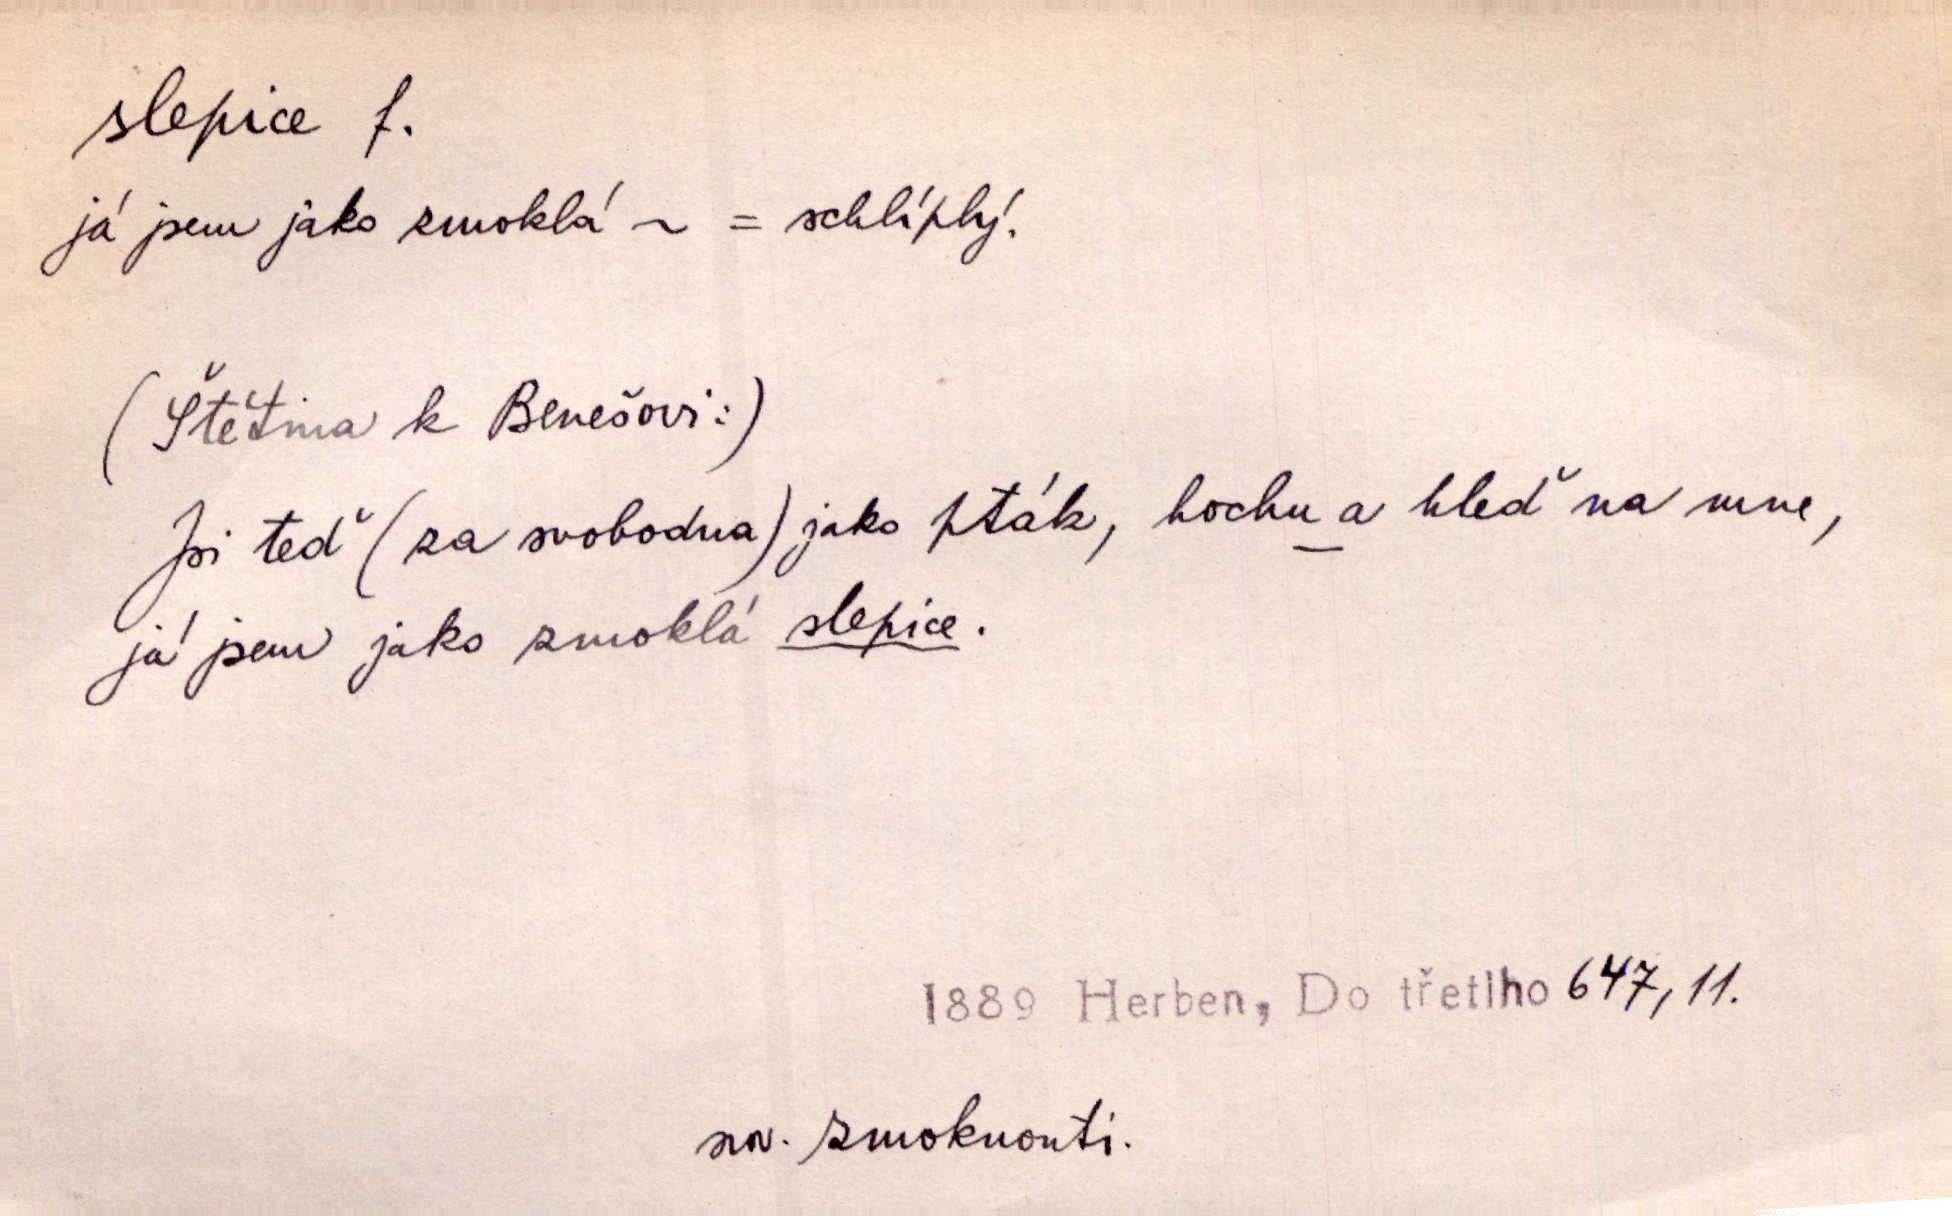 slepice f.
já jsem jako zmoklá ~ = schlíplý.
(Štětina k Benešovi:)
Jsi teď (za svobodna) jako pták, hochu_a hleď na mne,
já jsem jako zmoklá slepice.
1889 Herben, Do třetího 647, 11.
sv. zmoknouti.